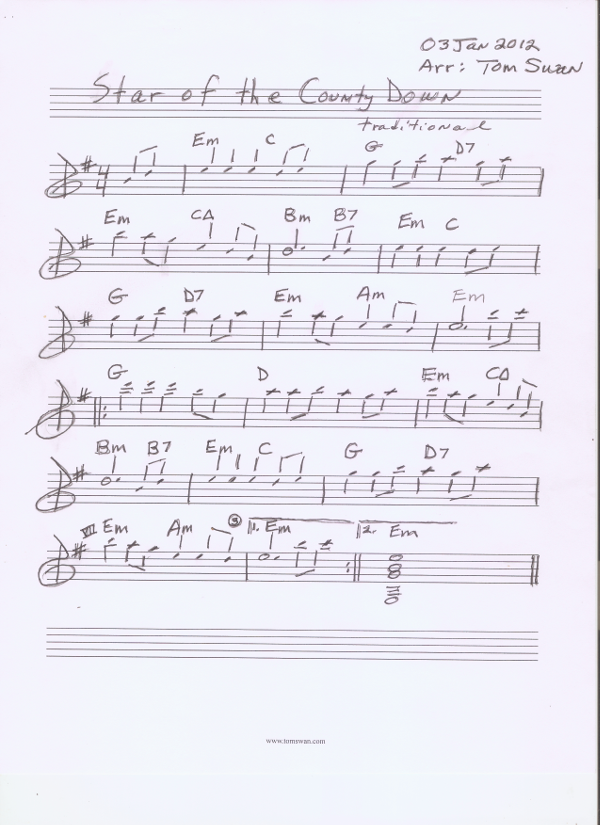 03 Jan 2012
Arr: Tom Swan
Star of the County Down
traditional
4/4 Em C G D7
Em C△ Bm B7 Em C
G D7 Em Am Em
G D Em C△
Bm B7 Em C G D7
VII Em Am ③ 1. Em 2. Em
www.tomswan.com